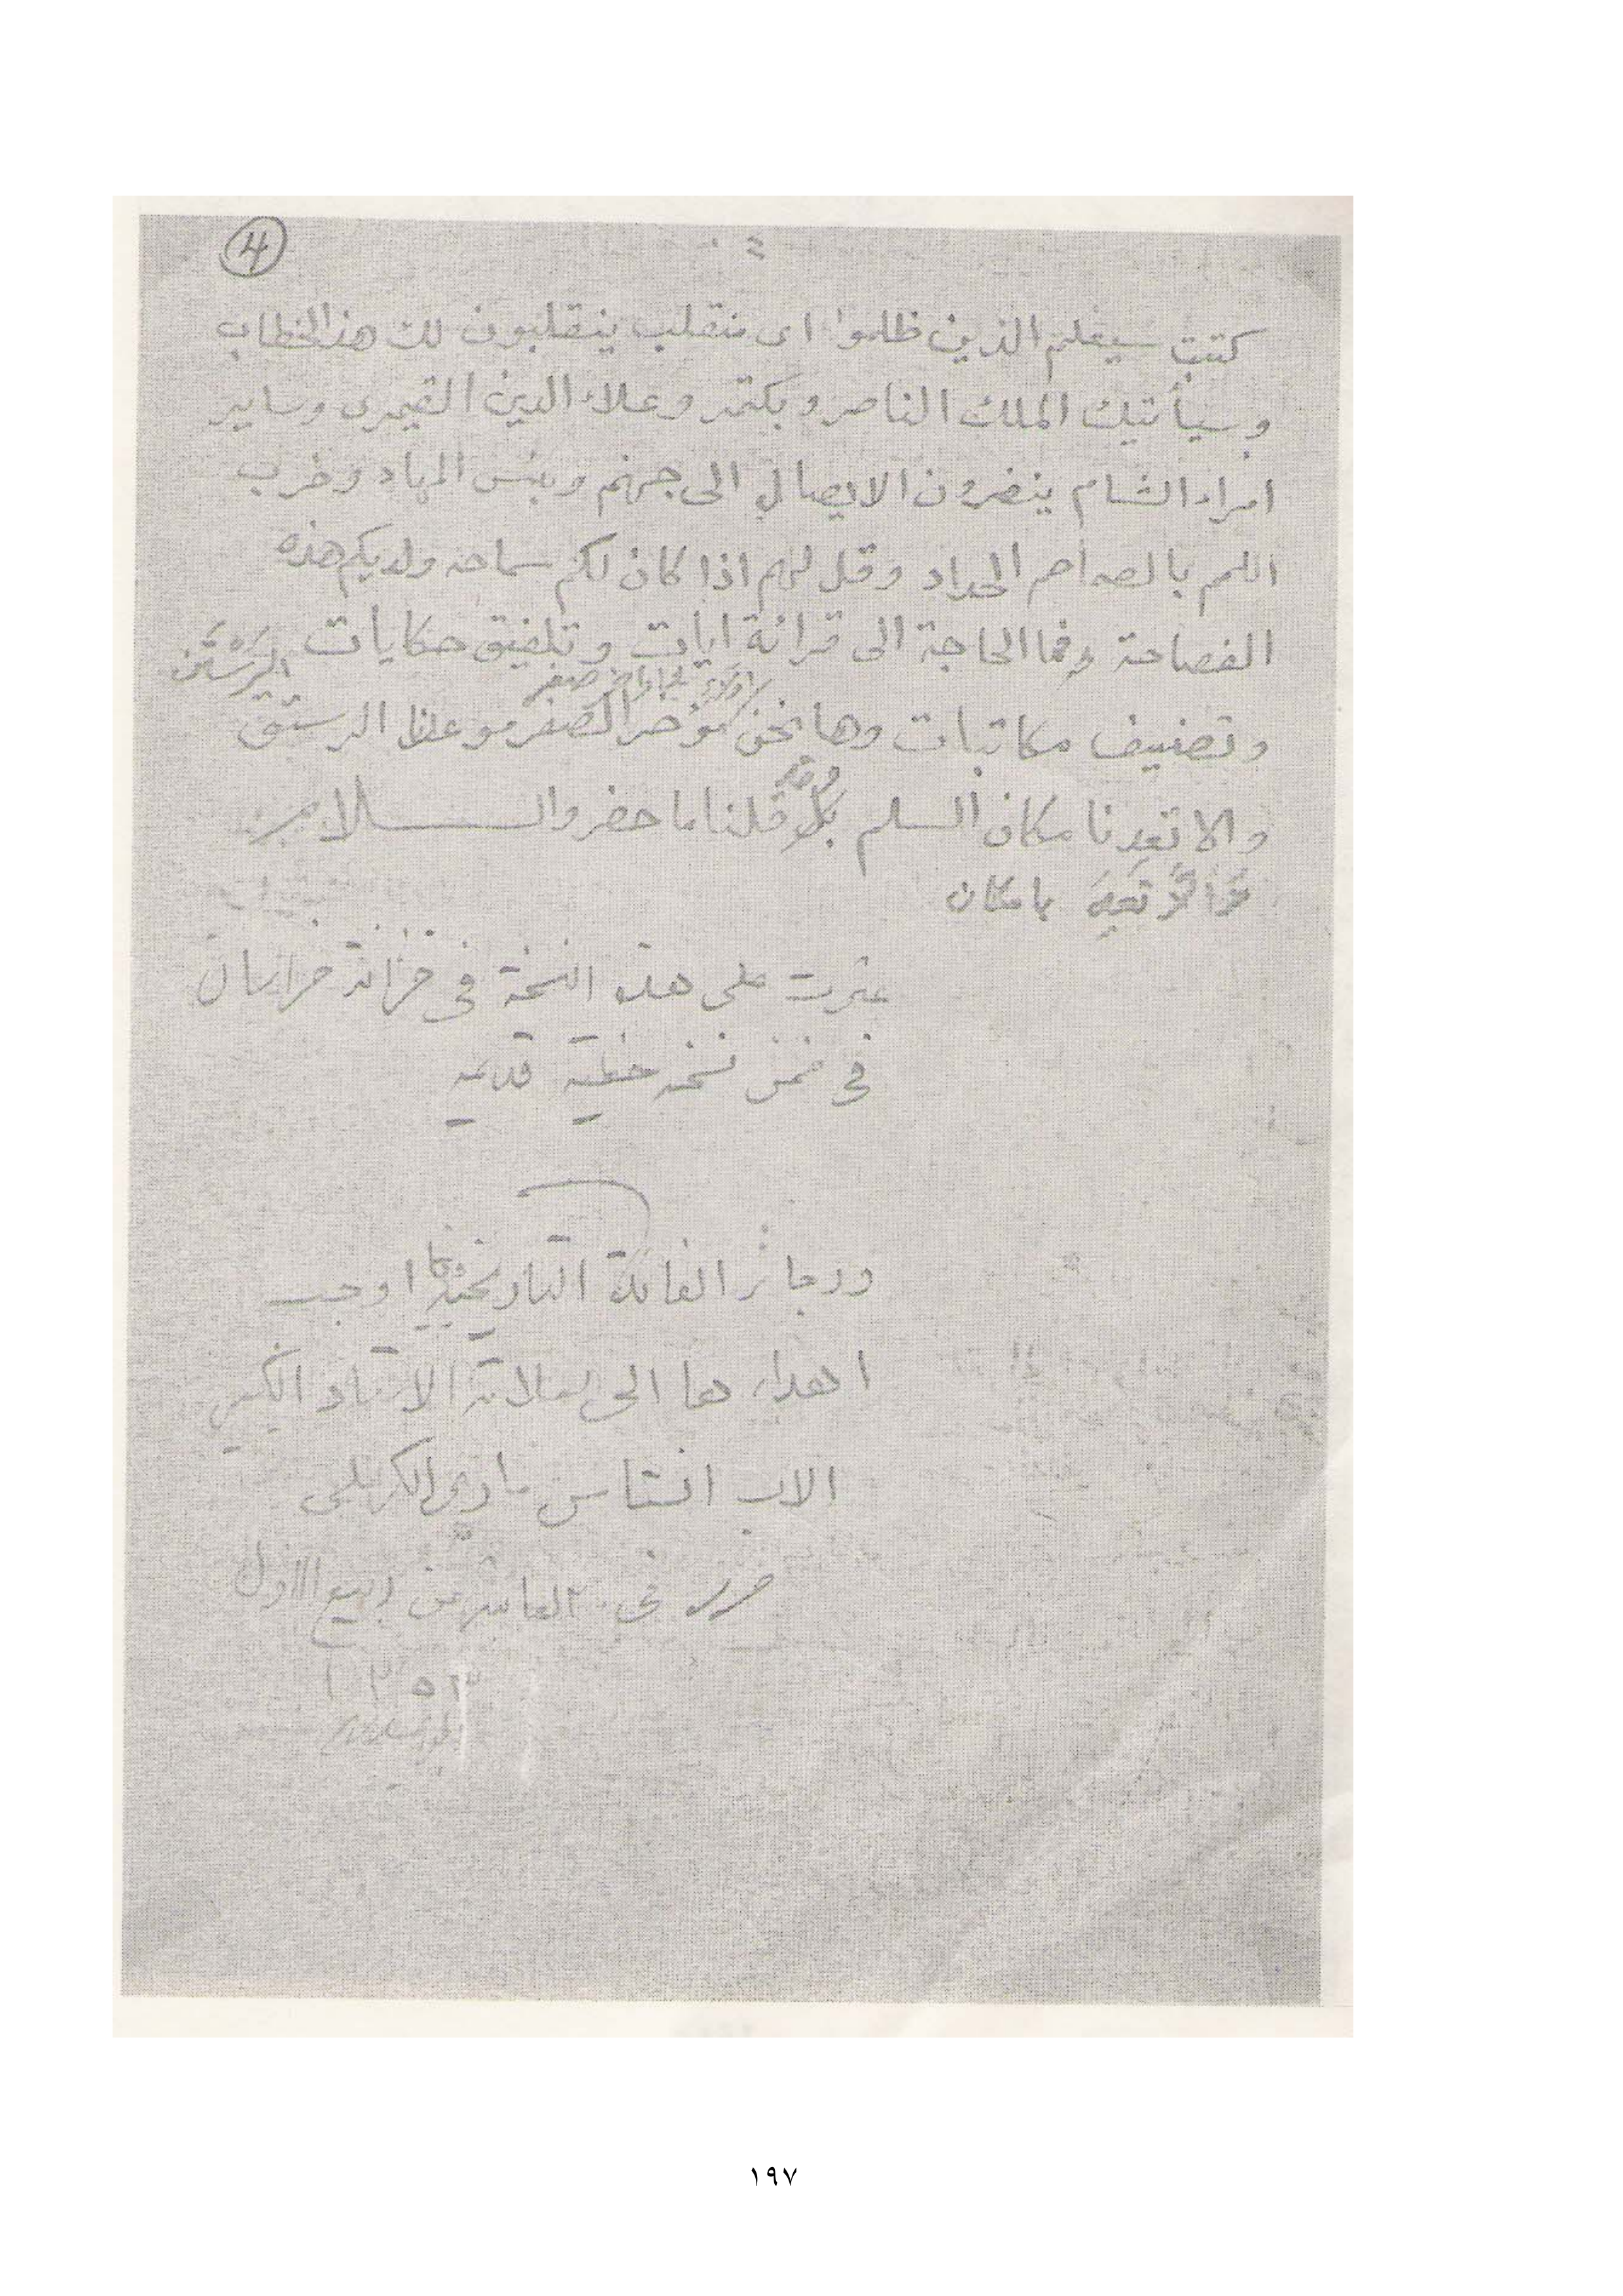 4
كتبت سيعلم الذين ظلموا اى منقلب ينقلبون لك هذا الخطاب
وسيأتيك الملك الناصر وبكتمر وعلاء الدين القيمرى وساير
امراء الشام ينفرون الايصال الى جهنم وبئس المهاد وضرب
اللمم بالصمصام الحداد وقل لهم اذا كان لكم سماحه ولديكم هذه
الفصاحة فما الحاجة الى قرائة ايات وتلفيق حكايات
الرستن
اولاء فى اواخر صفر
وتصنيف مكاتبات وها نحن مؤخر الصفر موعظ الرستق
والا تعدنا مكان السلم قلنا ما حضر والسلام
مكان
عثرت على هذه النسخة فى خزانة خراسان
فى ضمن نسخه خطية قديمه
ورجائز الفائدة التاريخية اوجب
اهداءها الى العلامة الاستاد الكبير
الاب انستاس مارى الكرملى
حرر فى العاشر من ربيع الاول
١٣٥٣
١٩٧